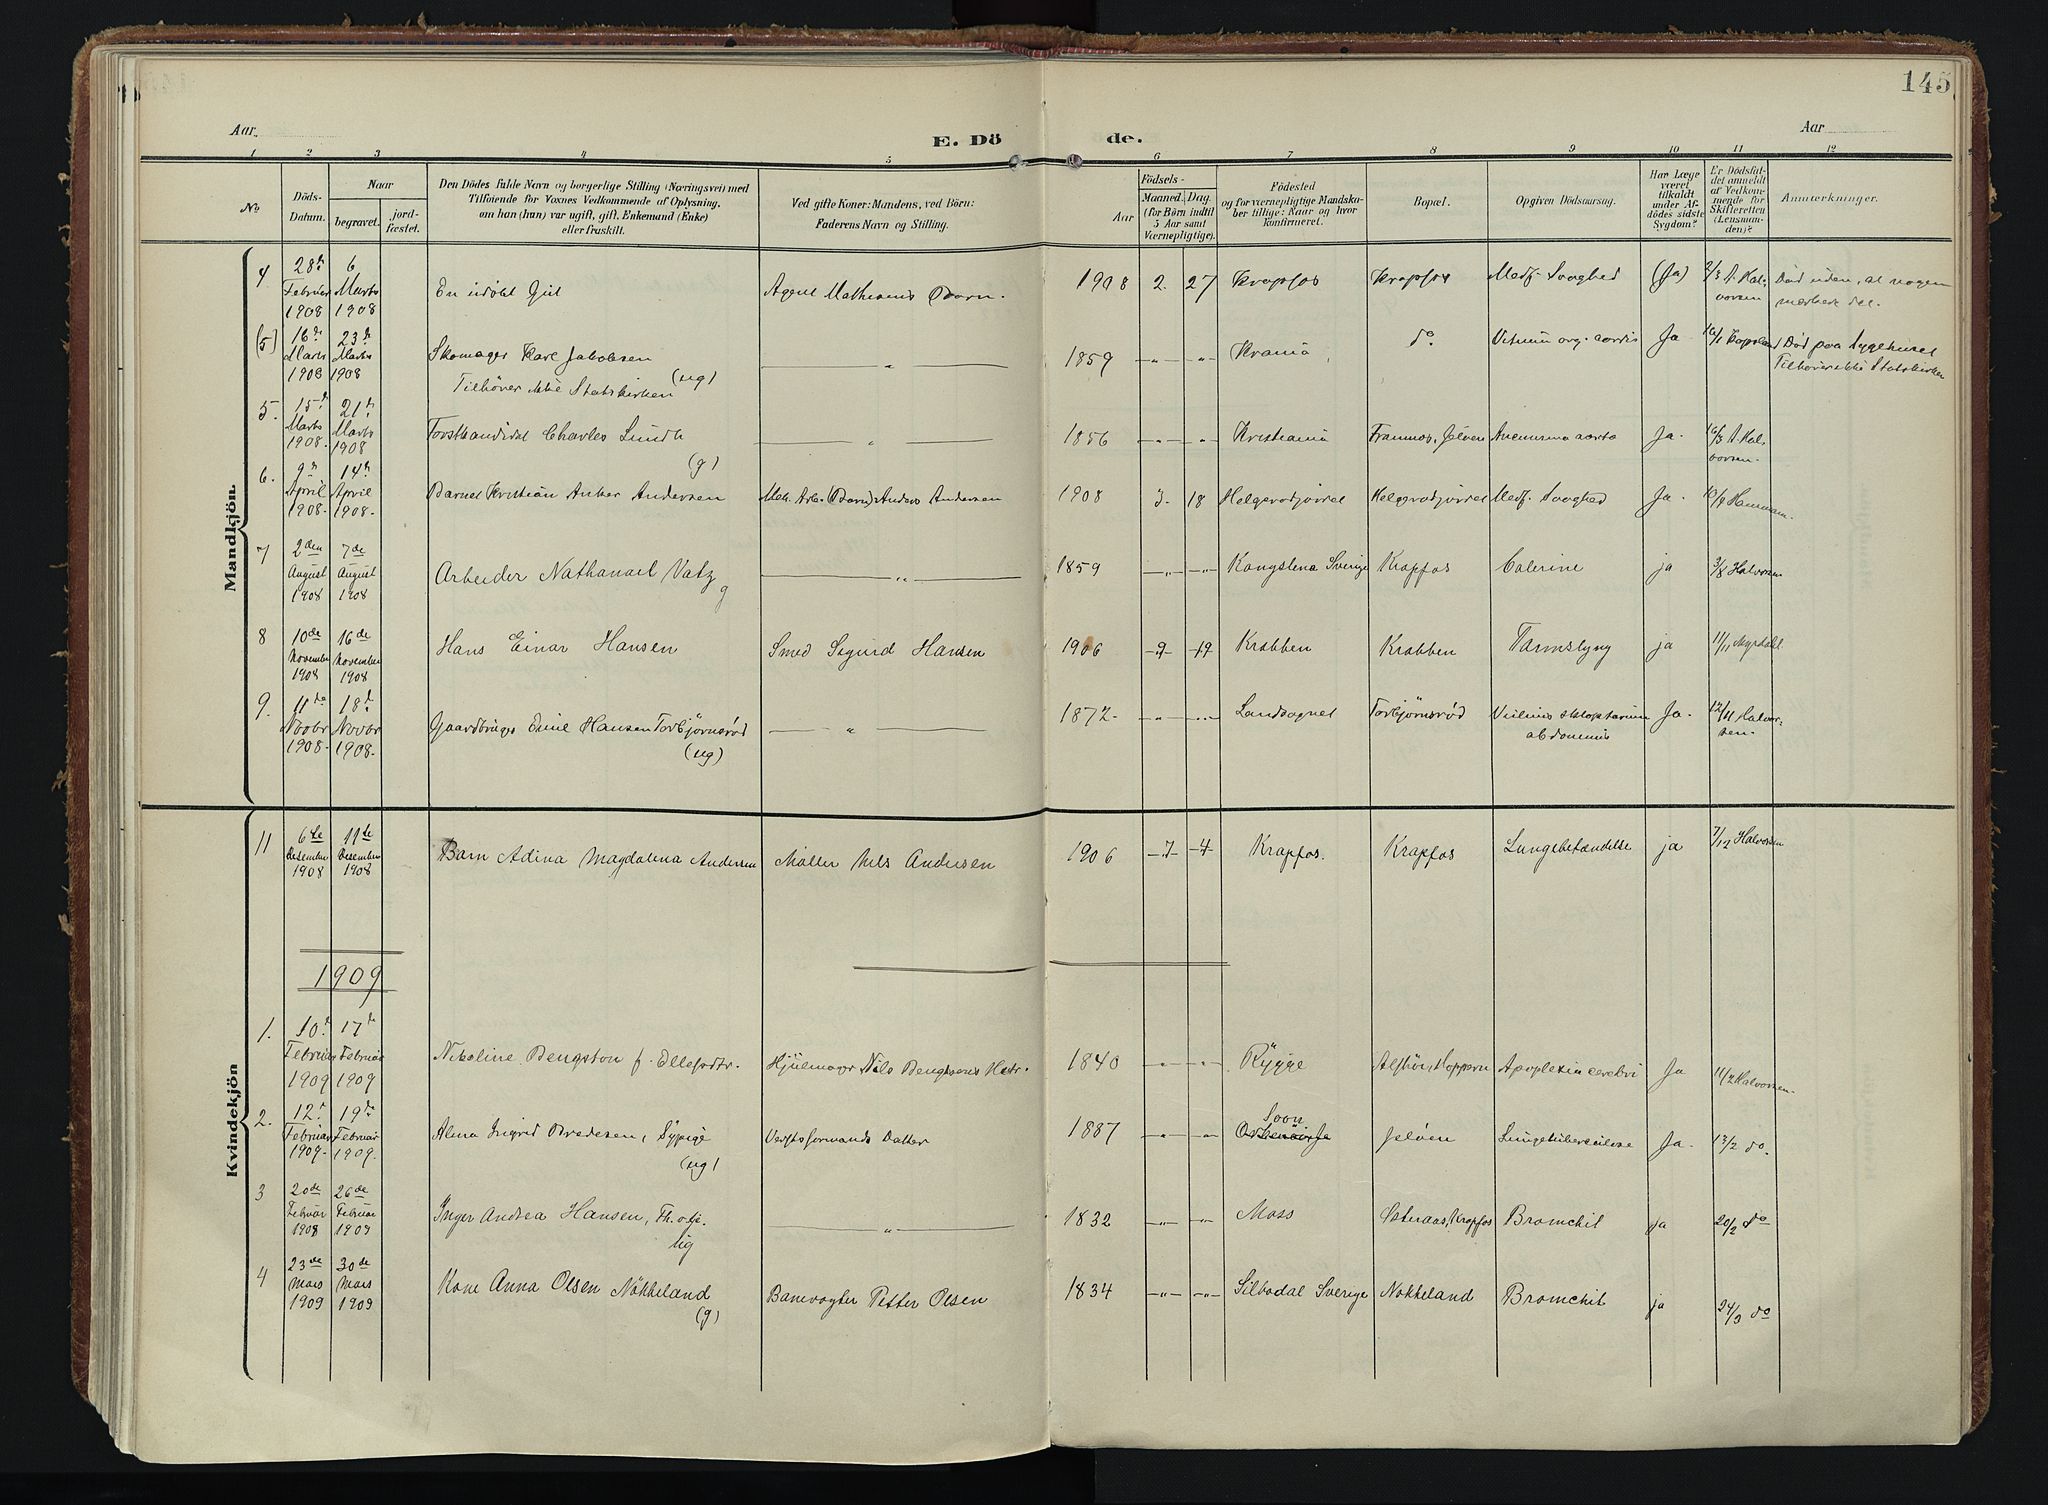 145
Aar
E. Dö de.
Aar
1 2 3 4 5 6 7 8 9 10 11 12
No.
Döds-Datum.
Naar
begravet.
jord-fæstet.
Den Dödes fulde Navn og borgerlige Stilling (Næringsvei) med
Tilföiende for Voxnes Vedkommende af Oplysning,
om han (hun) var ugift, gift, Enkemand (Enke)
eller fraskilt.
Ved gifte Koner: Mandens, ved Börn:
Faderens Navn og Stilling.
Födsels-
Aar
Maaned. Dag
(for Börn indtil
5 Aar samt
Værnepligtige).
Födested
og for værnepligtige Mandska-
ber tillige: Naar og hvor
konfirmeret.
Bopæl.
Opgiven Dödsaarsag.
Har Læge
været
tilkaldt
under Af-
dödes sidste
Sygdom?
Er Dödsfal-
det anmeldt
af Vedkom-
mende for
Skifteretten
(Lensman-
den)?
Anmærkninger.
Mandkjön.
4 28de Februar 1908 6 Marts 1908 En udöbt Gut Agent Mathisens Barn. 1908 2. 27 Krapfos Krapfos Medf. Svaghed (Ja) 2/3 A. Halvorsen Död uden, at nogen
mærkede det.
(5) 16de Marts 1908 23de Marts 1908 Skomager Karl Jakobsen (ug) 1859 Krania do Vitium org. cordis Ja 16/1 Död paa Sygehuset
Tilhörer ikke Statskirken Tilhörer ikke Statskirken
5. 15de Marts 1908. 21de Marts 1908 Forstkandidat Charles Lundh (g) 1856 Kristiania Framnes, Jelöen Aneurisma aorta Ja. 16/3 A. Halvorsen.
6. 9de April 1908. 14de April 1908. Barnet Kristian Anker Andersen Mek. Arb. (Barn) Anders Andersen 1908 3. 18 Helgerødjördet Helgerødjördet Medf. Svaghed Ja. 10/4
7 2den August 1908 7de August 1908 Arbeider Nathanael Vatz g 1859 Kongslena Sverige Krapfos Ja 3/8 Halvorsen
8 10de November 1908 16de November 1908 Hans Einar Hansen Smed Sigurd Hansen 1906 9 19 Krabben Krabben Tarmslyng ja 11/11 Myrdahl
9. 11de Novbr 1908. 18de Novbr 1908. Gaardbruger Emil Hansen Torbjørnsrød (ug) 1872. Landsognet Torbjørnsrød abdominis Ja. 12/11 Halvorsen.
Kvindekjön
11 6te Desember 1908 11te Desember 1908 Barn Adina Magdalena Andersen Maller Nils Andersen 1906 7 4 Krapfos. Krapfos Lungebetændelse ja 7/12 Halvorsen
1909
1. 10de Februar 1909 17de Februar 1909 Nikoline Bengston f. Ellefsdtr. Hjulmager Nils Bengtsons Hustr. 1840 Rygge Apoplexia cerebri Ja 11/2 Halvorsen.
2. 12te Februar 1909. 19de Februar 1909. Alma Ingrid Bredesen, Sypige (ug) Verftsformands Datter 1887 Soon Jelöen Lungetuberculose Ja. 13/2 do.
3 20de Februar 1908 26de Februar 1909 Inger Andrea Hansen, Th. olje. lig 1832 Moss Osteraas, Krapfos Bronchit ja 20/2 do
4 23de Mars 1909 30de Mars 1909 Kone Anna Olsen Nökkeland (g) Banevogter Petter Olsen 1834 Silbodal Sverige Nokkeland Bronchit ja 24/3 do